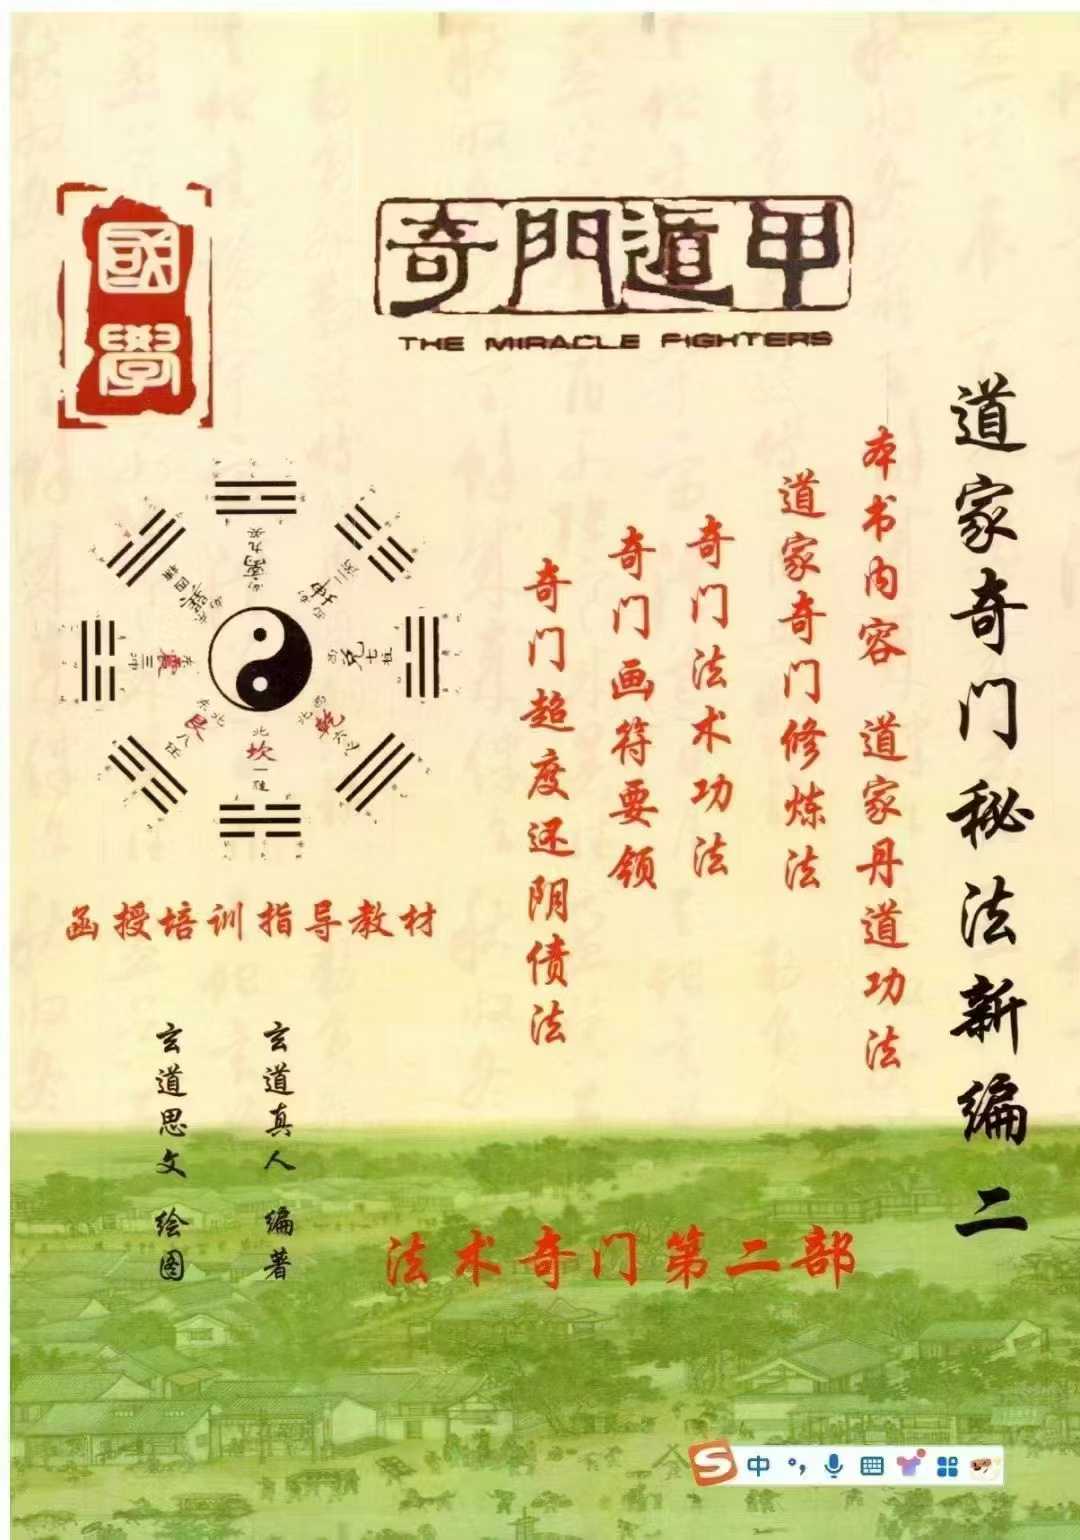 國學
奇門遁甲
THE MIRACLE FIGHTERS
道家奇门秘法新编二
本书内容 道家丹道功法
道家奇门修炼法
奇门法术功法
奇门画符要领
奇门超度还阴债法
离九
兑七
乾六
北
坎一
东北
艮八任
震三
四
函授培训指导教材
玄道真人 编著
玄道思文 绘图
法术奇门第二部
中